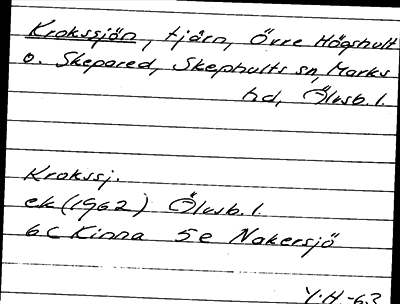 Krokssjön, tjärn, Övre Högshult
o. Skepared, Skephults sn, Marks
hd, Älvsb. l.
Krokssj.
ek (1962) Älvsb. l.
6C Kinna 5e Nakersjö
Y.H.-63